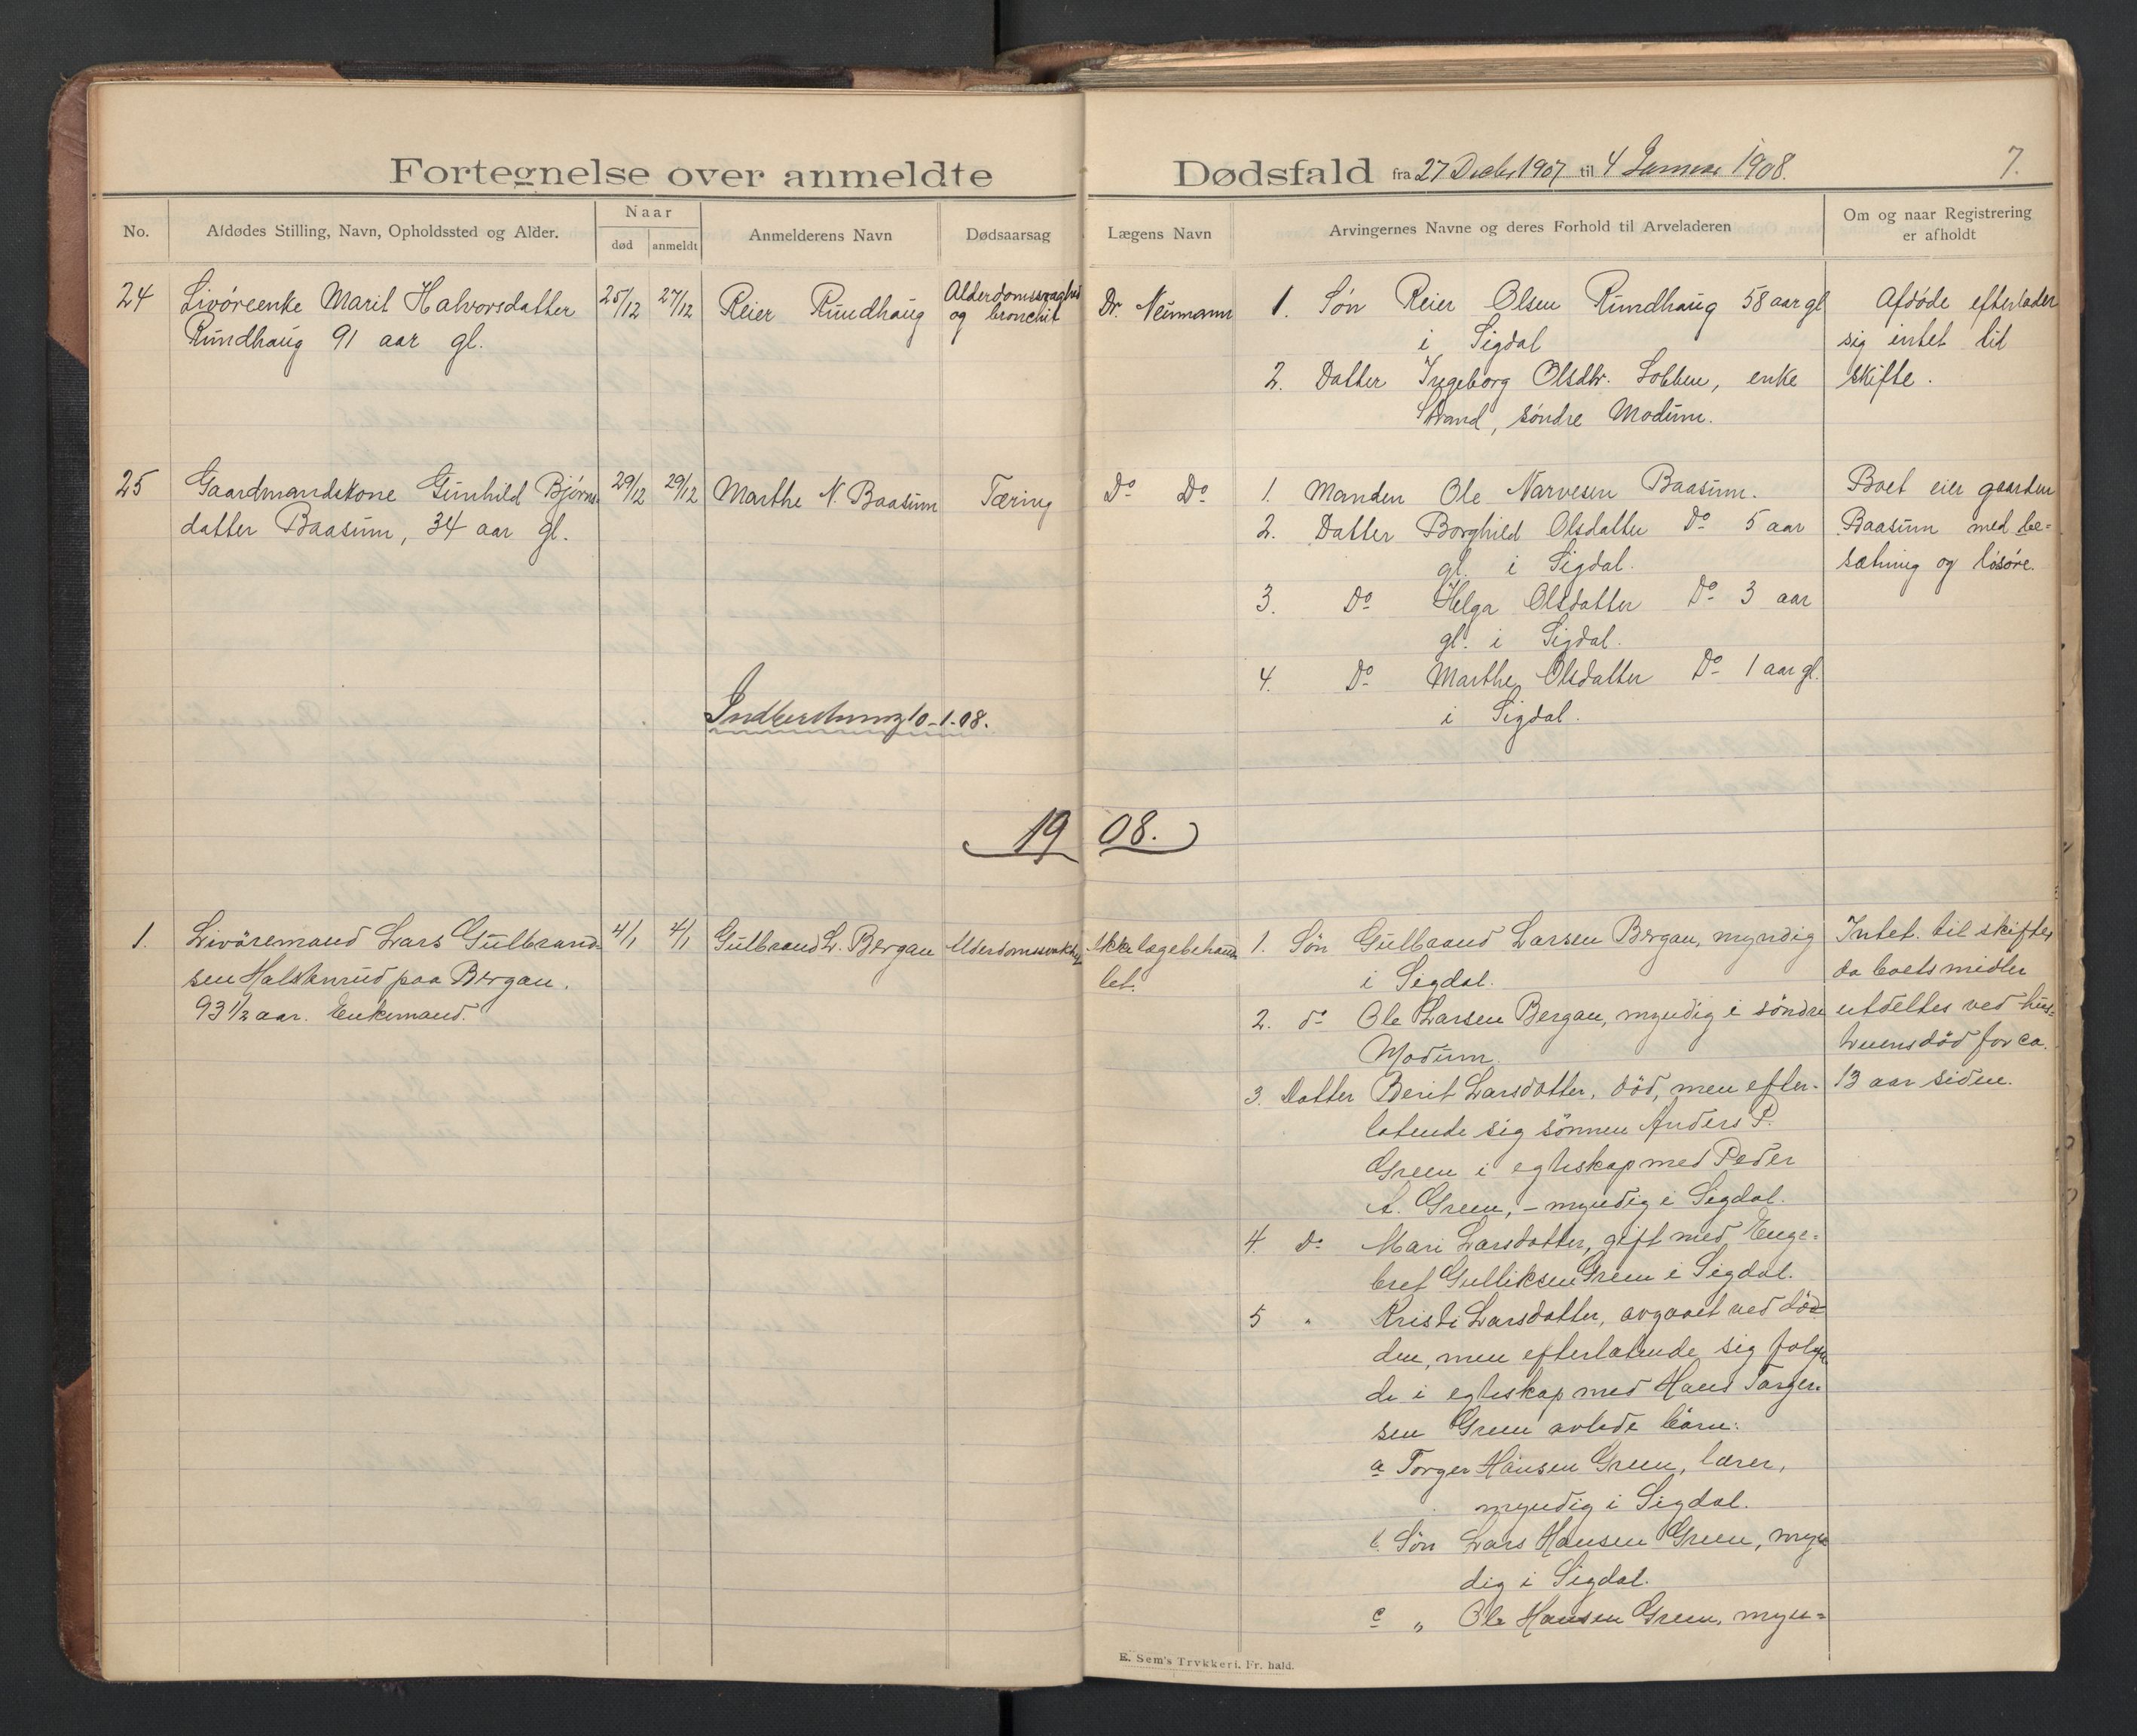 Fortegnelse over anmeldte Dødsfald fra 27 Decbr 1907 til 4 Januar 1908.
7.
No.
Afdødes Stilling, Navn, Opholdssted og Alder.
Naar
død
anmeldt
Anmelderens Navn
Dødsaarsag
Lægens Navn
Arvingernes Navne og deres Forhold til Arveladeren
Om og naar Registrering
er afholdt
24
Livøreenke Marit Halvorsdatter
Rundhaug 91 aar gl.
25/12
27/12
Reier Rundhaug
Alderdomssvaghed
og bronchit
Dr. Neumann
1. Søn Reier Olsen Rundhaug 58 aar gl
i Sigdal
2. Datter Ingeborg Olsdtr. Lobben, enke
Strand, søndre Modum.
Afdøde efterlader
sig intet til
skifte.
25
Gaardmandskone Gunhild Bjørns
datter Baasum, 34 aar gl.
29/12
29/12
Marthe N. Baasum
Tæring
Do Do
1. Manden Ole Narvesen Baasum.
2. Datter Borghild Olsdatter Do 5 aar
gl. i Sigdal.
3. Do Helga Olsdatter Do 3 aar
gl. i Sigdal.
4. Do Marthe Olsdatter Do 1 aar gl.
i Sigdal.
Boet eier gaarden
Baasum med be-
sætning og løsøre.
Indberetning 10-1-08.
1908.
1.
Livöremand Lars Gulbrand-
sen Halstenrud paa Bergan.
93 1/2 aar. Enkemand.
4/1
4/1
Gulbrand L. Bergan
Alderdomssvakhet
Ikke lægebehand
let.
1. Sön Gulbrand Larsen Bergan, myndig
i Sigdal.
2. do Ole Larsen Bergan, myndig i söndre
Modum.
3. Datter Berit Larsdatter, död, men efter-
latende sig sönnen Anders P.
Green i egteskap med Peder
A. Green, - myndig i Sigdal.
4. Do Mari Larsdatter, gift med Enge-
bret Gulliksen Green i Sigdal.
5 " Kristi Larsdatter, avgaaet ved dö-
den, men efterlatende sig fölgen
de i egteskap med Hans Torger-
sen Green avlede börn:
a Torger Hansen Green, lærer,
myndig i Sigdal.
b. Sön Lars Hansen Green, myn
dig i Sigdal.
c " Ole Hansen Green, myn-
Intet til skifte,
da boets midler
utdeltes ved hus-
truens död for ca.
13 aar siden.
E. Sem's Trykkeri, Fr. hald.